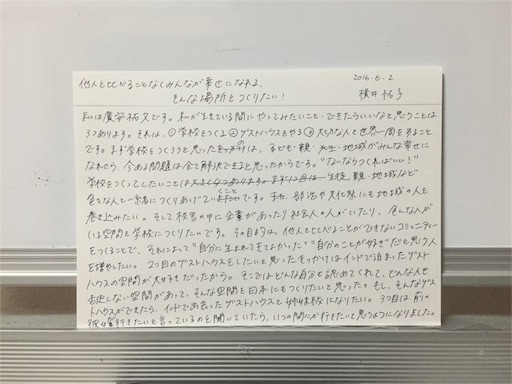 他人と比べることなくみんなが幸せになれる、
そんな場所をつくりたい!
2016.6.2
横井祐子
私は廣安祐文です。私が生きている間にやってみたいこと・できたらいいなと思うことは
3つあります。それは、①学校をつくる②ゲストハウスをやる③大切な人と世界一周をすること
です。まず学校をつくろうと思ったのは、子ども・親・先生・地域がみんな幸せに
なれたら、今ある問題は全て解決できると思ったからです。"ないならつくればいい!"
学校をつくってしたいことは 生徒、親、地域など
色々な人と一緒につくりあげていくことです。また、部活や文化祭にも地域の人を
巻き込みたい。そして校舎の中に企業があったり社会人の人がいたり、色んな人が
いる空間を学校につくりたいです。その目的は、他人と比べることができないコミュニティー
をつくることで、それによって"自分に生まれてきてよかった""自分のことが好き"だと思う人
を増やしたい。2つ目のゲストハウスをしたいと思ったきっかけはインドで泊まったゲスト
ハウスの空間が大好きだったから。そこではどんな自分も認めてくれて、どんな人も
否定しない空間があって、そんな空間を日本にもつくりたいと思った。もし、そんなゲス
トハウスができたら、インドで出会ったゲストハウスと姉妹校になりたい。3つ目は、前の
彼が行きたいと言っているのを聞いていたら、いつの間にか行きたいと思うようになりました。